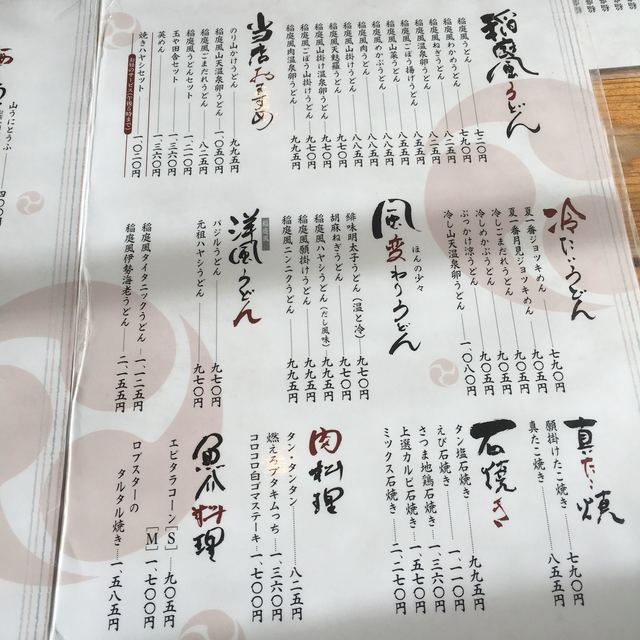 稲庭風うどん
稲庭風うどん 七二〇円
稲庭風わかめうどん 七九〇円
稲庭風ねぎうどん 八二五円
稲庭風温泉卵うどん 八二五円
稲庭風ごぼう揚げうどん 八八五円
稲庭風山菜うどん 八八五円
稲庭風めかぶうどん 八八五円
稲庭風肉うどん 八八五円
稲庭風山掛けうどん 九七〇円
稲庭風天魁羅うどん 九七〇円
稲庭風山掛け温泉卵うどん 九七〇円
稲庭風ごぼう山掛けうどん 九七〇円
稲庭風肉温泉卵うどん 九七〇円
当店おすすめ
のり山かけうどん 九九五円
稲庭風山天温泉卵うどん 一、〇五〇円
稲庭風ごまだれうどん 八二五円
稲庭風うどんセット 一、二一〇円
玉や田舎セット 一、三六〇円
英めん 一、三六〇円
焼きハヤシセット 一、〇二〇円
お昼のサービス(午後5時まで)
冷たいうどん
夏一番ジョッキめん 七九〇円
夏一番月見ジョッキめん 九〇五円
冷しごまだれうどん 九〇五円
冷しめかぶうどん 九〇五円
ぶっかけ涼うどん 九〇五円
冷し山天温泉卵うどん 一、〇八〇円
風変わりうどん
ほんの少々
緋味明太子うどん(温と冷) 九七〇円
胡麻ねぎうどん 九七〇円
稲庭風ハヤシうどん(だし風味) 九九五円
稲庭風願掛けうどん 九九五円
稲庭風ニンニクうどん 九九五円
洋風うどん
バジルうどん 九七〇円
元祖ハヤシうどん 九七〇円
稲庭風タイタニックうどん 一、二一五円
稲庭風伊勢海老うどん 二、一五五円
真だこ焼
願掛けたこ焼き 七九〇円
真たこ焼き 五五〇円
石焼き
タン塩石焼き 九九五円
えび石焼き 一、一一〇円
さつま地鶏石焼き 一、三六〇円
上選カルビ石焼き 一、五一五円
ミックス石焼き 二、二七〇円
肉料理
タン・タンタン 八二五円
燃えろブタキムっち 一、三六〇円
コロコロ白ゴマステーキ 一、七〇〇円
魚介料理
エビタラコーン[S] 九〇五円
[M] 一、七〇〇円
ロブスターの
タルタル焼き 一、五八五円
山うにとうふ 四〇〇円